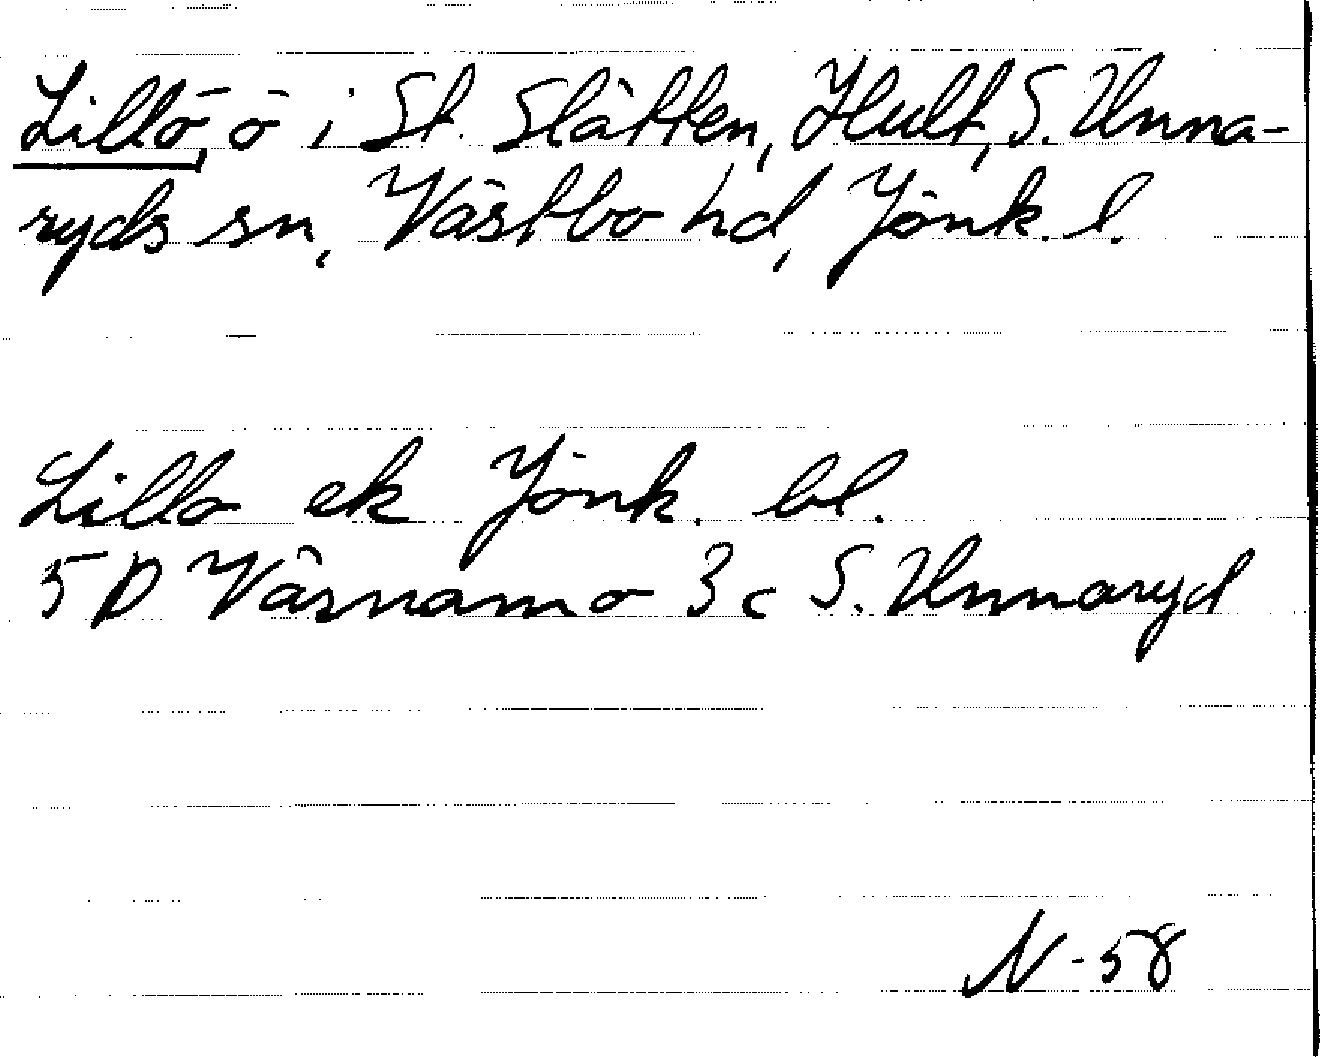 Lillö, ö i St. Slätten, Hult, S. Unna-
ryds sn, Västbo hd, Jönk. l.
Lillö ek Jönk. bl.
5 D Värnamo 3 c S. Unnaryd
N-58